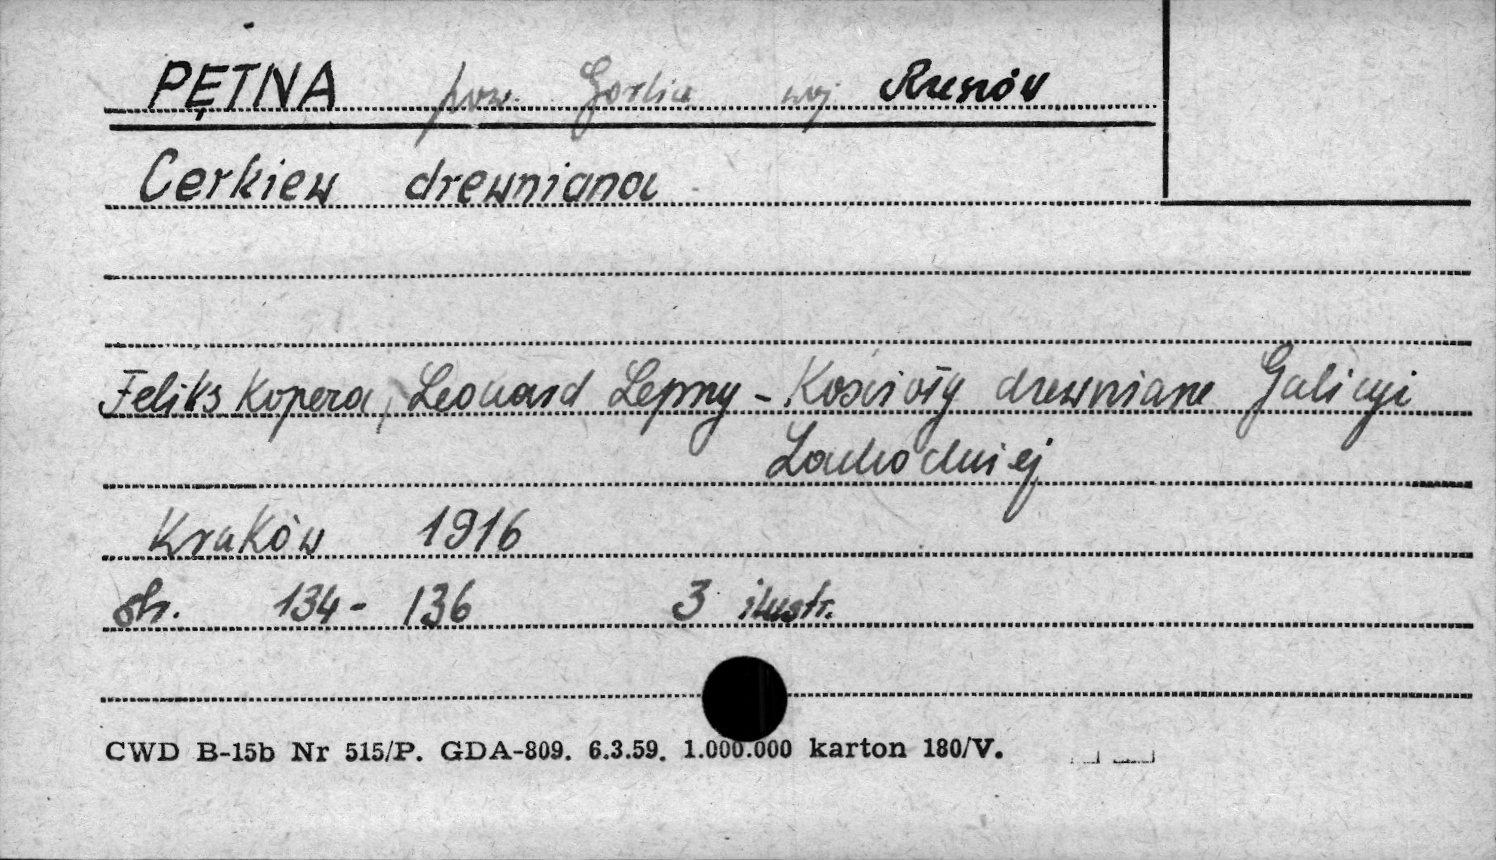 PĘTNA pow. Gorlice woj Rzeszów
Cerkiew drewniana
Feliks Kopera, Leonard Lepszy - Kościoły drewniane Galicyi
Zachodniej
Kraków 1916
str. 134 - 136 3 ilustr.
CWD B-15b Nr 515/P. GDA-809. 6.3.59. 1.000.000 karton 180/V.